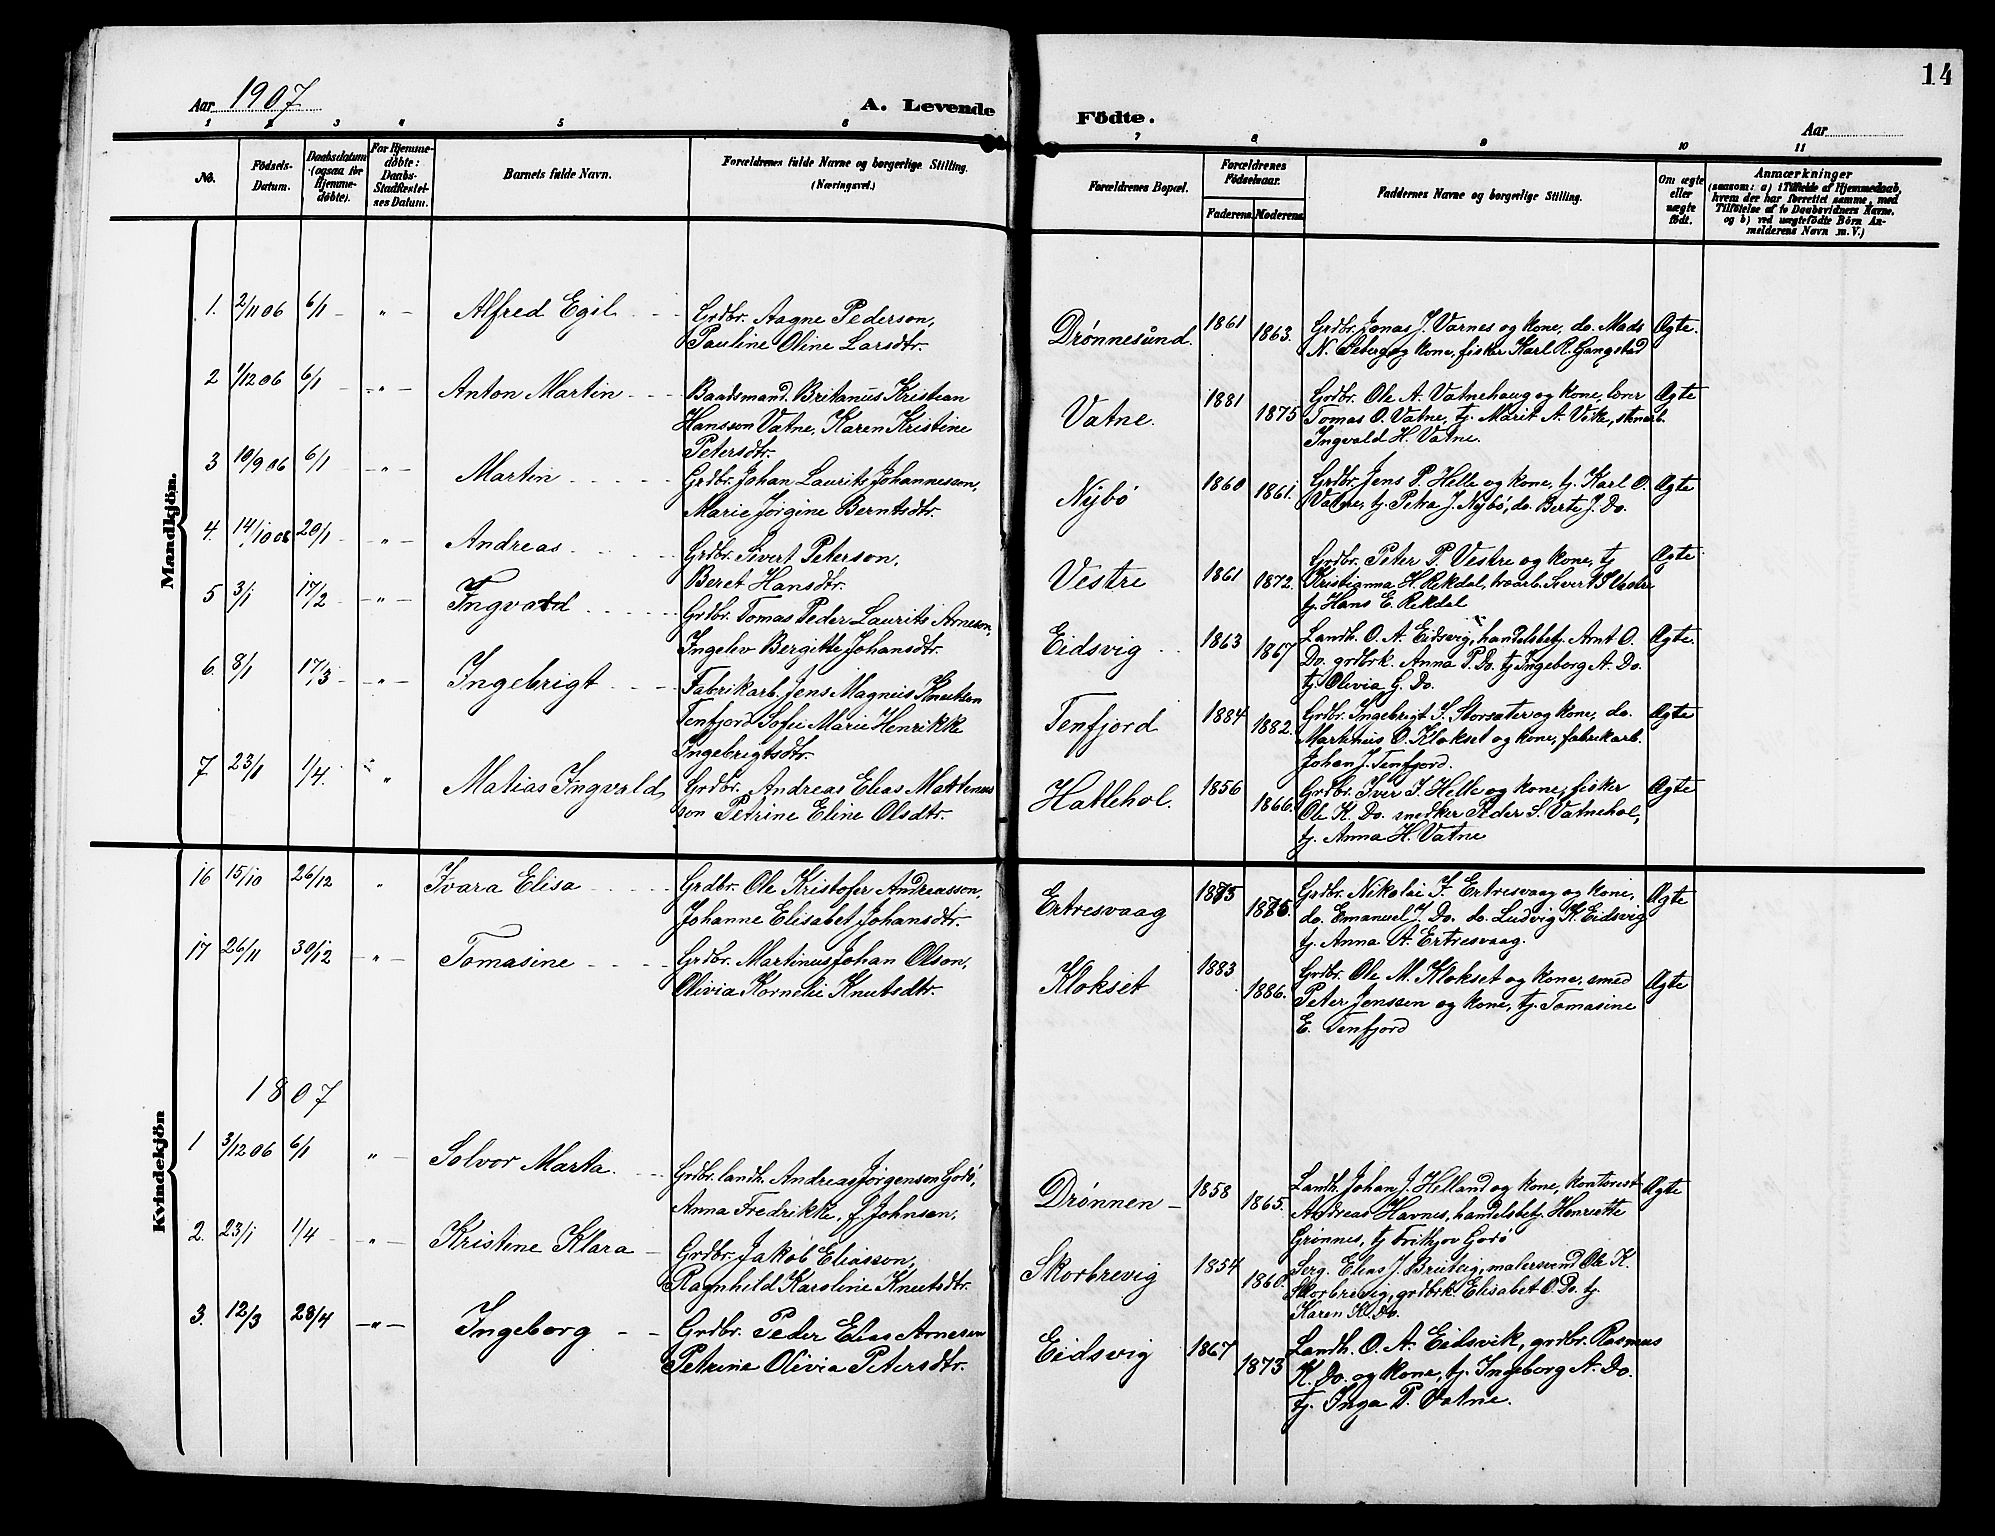 14
Aar 1907
A. Levende
Födte.
Aar
1 2 3 4 5 6 7 8 9 10 11
No.
Födsels-
Datum.
Daabsdatum
(ogsaa for
Hjemme-
döbte).
For Hjemme-
döbte:
Daabs-
Stadfæstel-
ses Datum.
Barnets fulde Navn.
Forældrenes fulde Navne og borgerlige Stilling.
(Næringsvei.)
Forældrenes Bopæl.
Forældrenes
Födselsaar.
Faderens. Moderens.
Faddernes Navne og borgerlige Stilling.
Om ægte
eller
uægte
födt.
Anmærkninger
(saasom: a) i Tilfælde af Hjemmedaab,
hvem der har forrettet samme, med
Tilföielse af to Daabsvidners Navne,
og b) ved uægtefödte Börn An-
melderens Navn m. V.)
Mandkjön.
1. 2/11 06 6/1 - " - Alfred Egil
Grdbr. Aagne Pederson,
Pauline Oline Larsdtr.
Drønnesund. 1861 1863.
Grdbr. Jonas J. Varnes og kone, do. Mads
N. Seberg og kone, fisker Karl R. Gangstad
Ægte.
2 1/12 06 6/1 - " - Anton Martin
Baadsmand. Britanus Kristian
Hansson Vatne, Karen Kristine
Petersdtr.
Vatne. 1881 1875
Grdbr. Ole A. Vatnehaug og kone, lærer
Tomas O. Vatne, tj. Marit A. Vike, stenarb.
Ingvald H. Vatne.
Ægte
3 10/9 06 6/1 - " - Martin
Grdbr. Johan Laurits Johannesson,
Marie Jørgine Berntsdtr.
Nybö 1860 1861.
Grdbr. Jens P. Helle og kone, tj. Karl O.
Vatne, tj. Petra J. Nybö, do. Berte J. Do.
Ægte
4. 14/10 06 20/1 - " - Andreas
Grdbr. Sivert Peterson,
Beret Hansdtr.
Vestre 1861 1872.
Grdbr. Peter P. Vestre og kone, tj
Kristianna H. Rekdal, træarb. Sivert S Vestre
tj. Hans E. Rekdal
Ægte
5 3/1 17/2 - " - Ingvald
Grdbr. Tomas Peder Laurits Arneson,
Ingelev Bergitte Johansdtr.
Eidsvig 1863 1867
Landh. O. A. Eidsvig, handelsbetj. Arnt O.
Do. grdbrk. Anna P. Do. tj Ingeborg A. Do.
tj. Olivia G. Do.
Ægte.
6. 8/1 17/3 - " - Ingebrigt
Fabrikarb. Jens Magnus Knutsen
Tenfjord Sofie Marie Henrikke
Ingebrigtsdtr.
Tenfjord 1884 1882.
Grdbr. Ingebrigt S. Storsæter og kone, do.
Martinus O. Klokset og kone, fabrikarb.
Johan J. Tenfjord.
Ægte
7. 23/1 1/4. " Matias Ingvald
Grdbr. Andreas Elias Martinus
son Petrine Eline Olsdtr.
Hatlehol. 1856 1866.
Grdbr. Iver I. Helle og kone, fisker
Ole K. Do. snedker Peder S. Vatnehol,
tj. Anna H. Vatne
Ægte
Kvindekjön
16 15/10 26/12 " Ivara Elisa
Grdbr. Ole Kristofer Andreasson,
Johanne Elisabet Johansdtr.
Ertresvaag 1875 1875.
Grdbr. Nikolai I. Ertresvaag og kone,
do. Emanuel J. Do. do. Ludvig K. Eidsvig
tj. Anna A. Ertresvaag.
Ægte
17 26/11 30/12 - " - Tomasine
Grdbr. Martinus Johan Olson,
Olivia Kornelie Knutsdtr.
Klokset 1883 1886.
Grdbr. Ole M. Klokset og kone, smed
Peter Jenssen og kone, tj. Tomasine
E. Tenfjord
Ægte
1807
1 3/12 06 6/1 " - Solvor Marta.
Grdbr. landh. Andreas Jørgenson Godö,
Anna Fredrikke, f Johnsen,
Drønnen - 1858 1865.
Landh. Johan J. Helland og kone, kontorist
Andreas Havnes, handelsbetj. Henriette
Grønnes, tj Fritkjov Godö
Ægte
2. 23/1 1/4 - " - Kristine Klara
Grdbr. Jakob Eliasson,
Ragnhild Karoline Knutsdtr.
Skorbrevig 1854 1860.
Serg. Elias J. Bruteig, malersvend Ole K.
Skorbrevig, grdbrk. Elisabet O. Do. tj.
Karen K. Do.
3. 12/3 28/4 - " - Ingeborg
Grdbr. Peder Elias Arnesen
Petrine Olivia Petersdtr.
Eidsvig 1867 1873
Landh. O. A. Eidsvik, grdbr. Rasmus
K. Do. og kone, tj. Ingeborg A. Do.
tj. Inga P. Vatne.